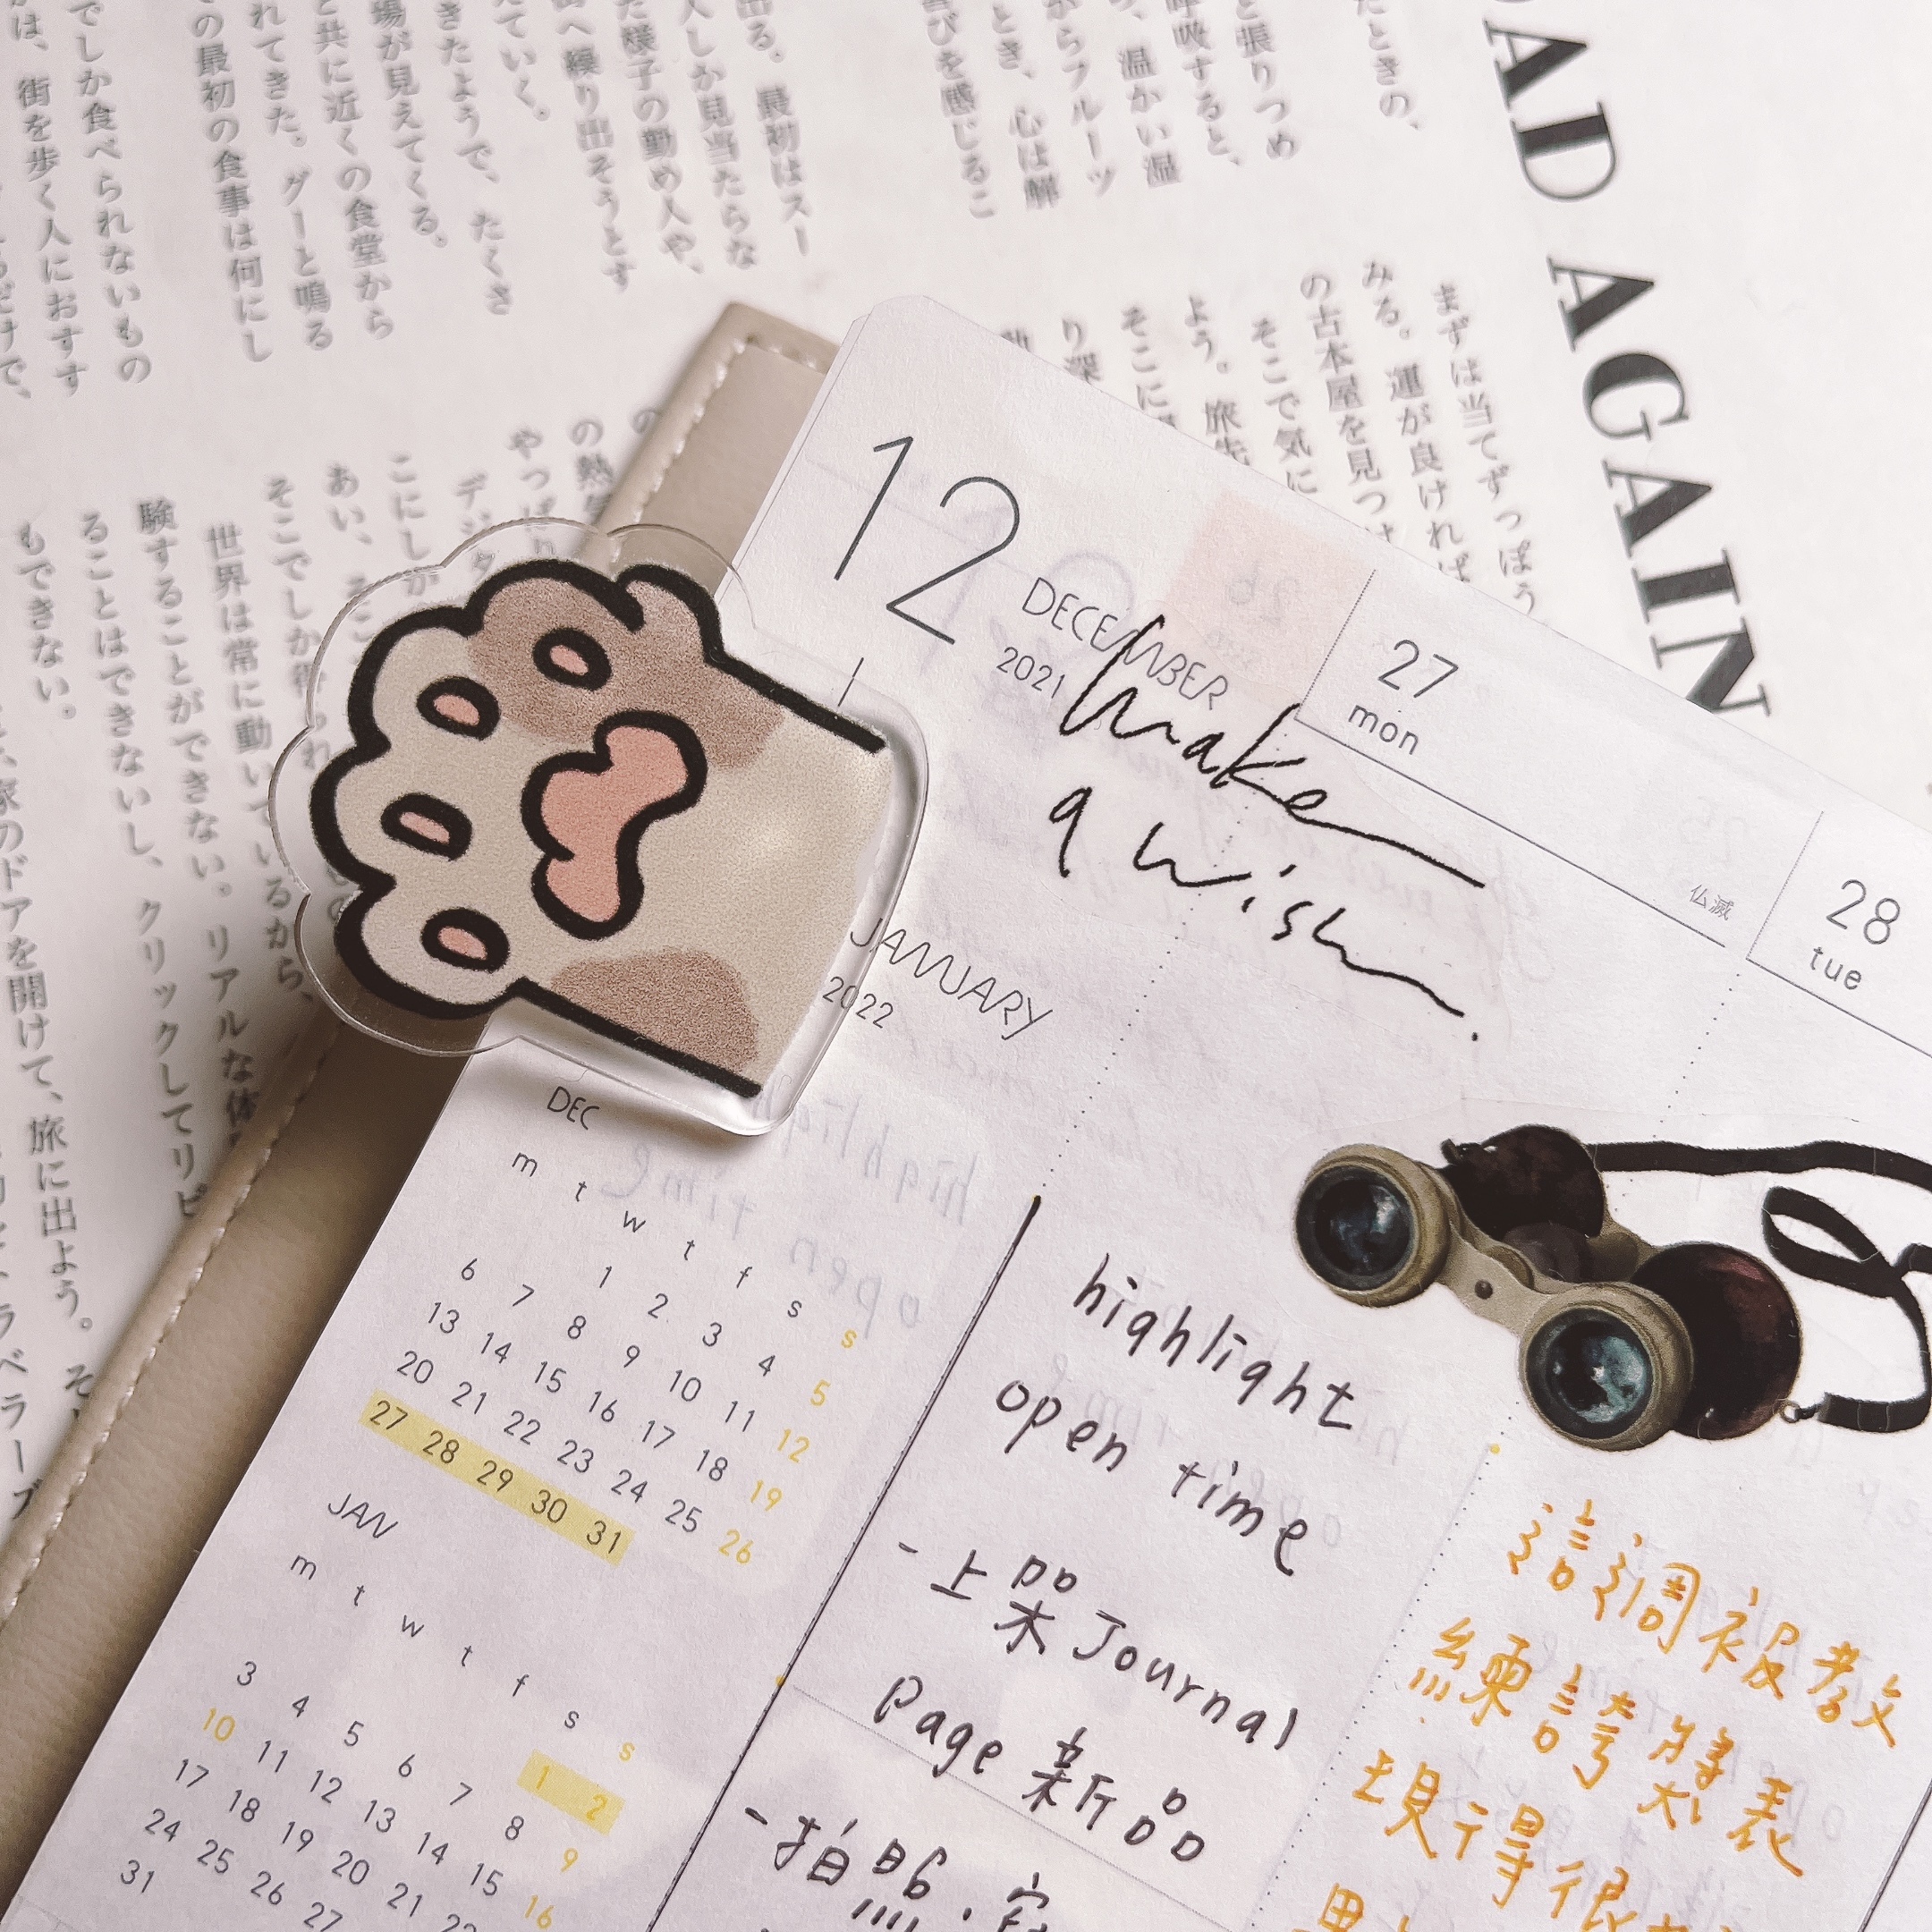 AD AGAIN
たときの、
と張りつめ
呼吸すると、
、温かい温
がらフルーツ
とき、心は鮮
喜びを感じるこ
出る。最初はスー
人しか見当たらな
た様子の勤め人や、
街へ繰り出そうとす
えていく。
きたようで、たくさ
場が見えてくる。
と共に近くの食堂から
れてきた。グーと鳴る
の最初の食事は何にし
でしか食べられないもの
は、街を歩く人におすす
まずは当てずっぽう
みる。運が良ければ
の古本屋を見つけ
そこで気に
よう。旅先
そこに
り深
の熱
やっぱり
デジタ
こにしか
あい、そこ
そこでしか得られ
世界は常に動いているから、
験することができない。リアルな体
ることはできないし、クリックしてリピ
もできない。
家のドアを開けて、旅に出よう。そ
トラベラーズ
12
DECEMBER
2021
make
a wish.
27
mon
仏滅
28
tue
JANUARY
2022
DEC
m t w t f s s
1 2 3 4 5
6 7 8 9 10 11 12
13 14 15 16 17 18 19
20 21 22 23 24 25 26
27 28 29 30 31
JAN
m t w t f s s
1 2
3 4 5 6 7 8 9
10 11 12 13 14 15 16
17 18 19 20 21 22
24 25 26 27
31
highlight
open time
- 上架 Journal
Page 新品
- 拍照、
這週被教
練誇獎表
現得很